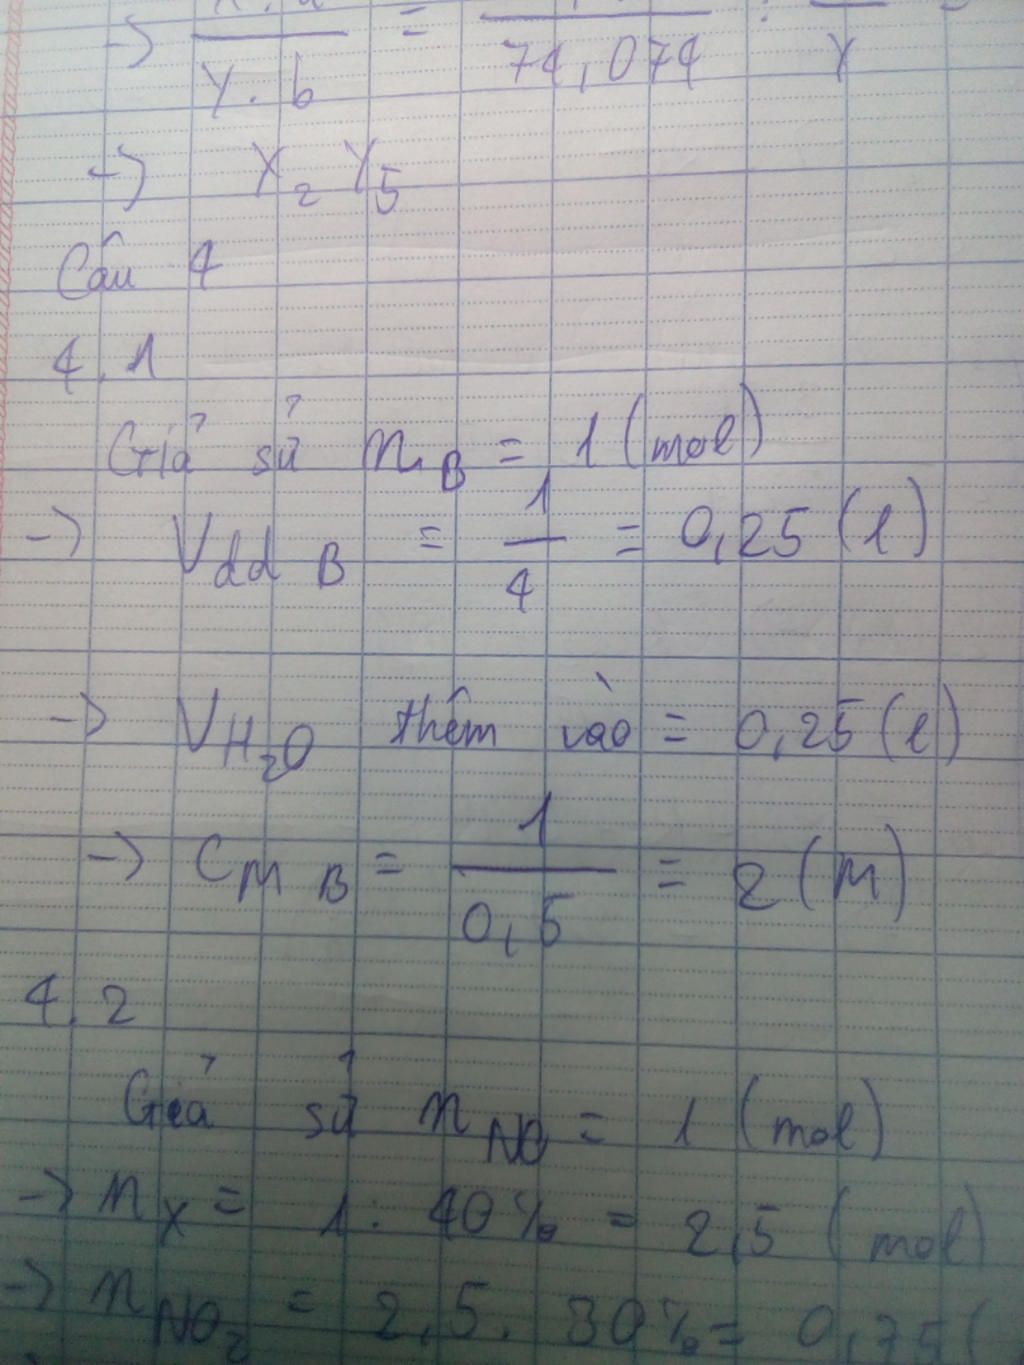 -> / Y.b = / 74,074 : / Y
-> X₂Y₅
Câu 4
4.1
Giả sử n B = 1 (mol)
-> Vdd B = 1/4 = 0,25 (l)
-> VH₂O thêm vào = 0,25 (l)
-> CM B = 1/0,5 = 2 (M)
4.2
Giả sử n NO = 1 (mol)
-> nX = 1 : 40% = 2,5 (mol)
-> nNO₂ = 2,5 . 30% = 0,75 (